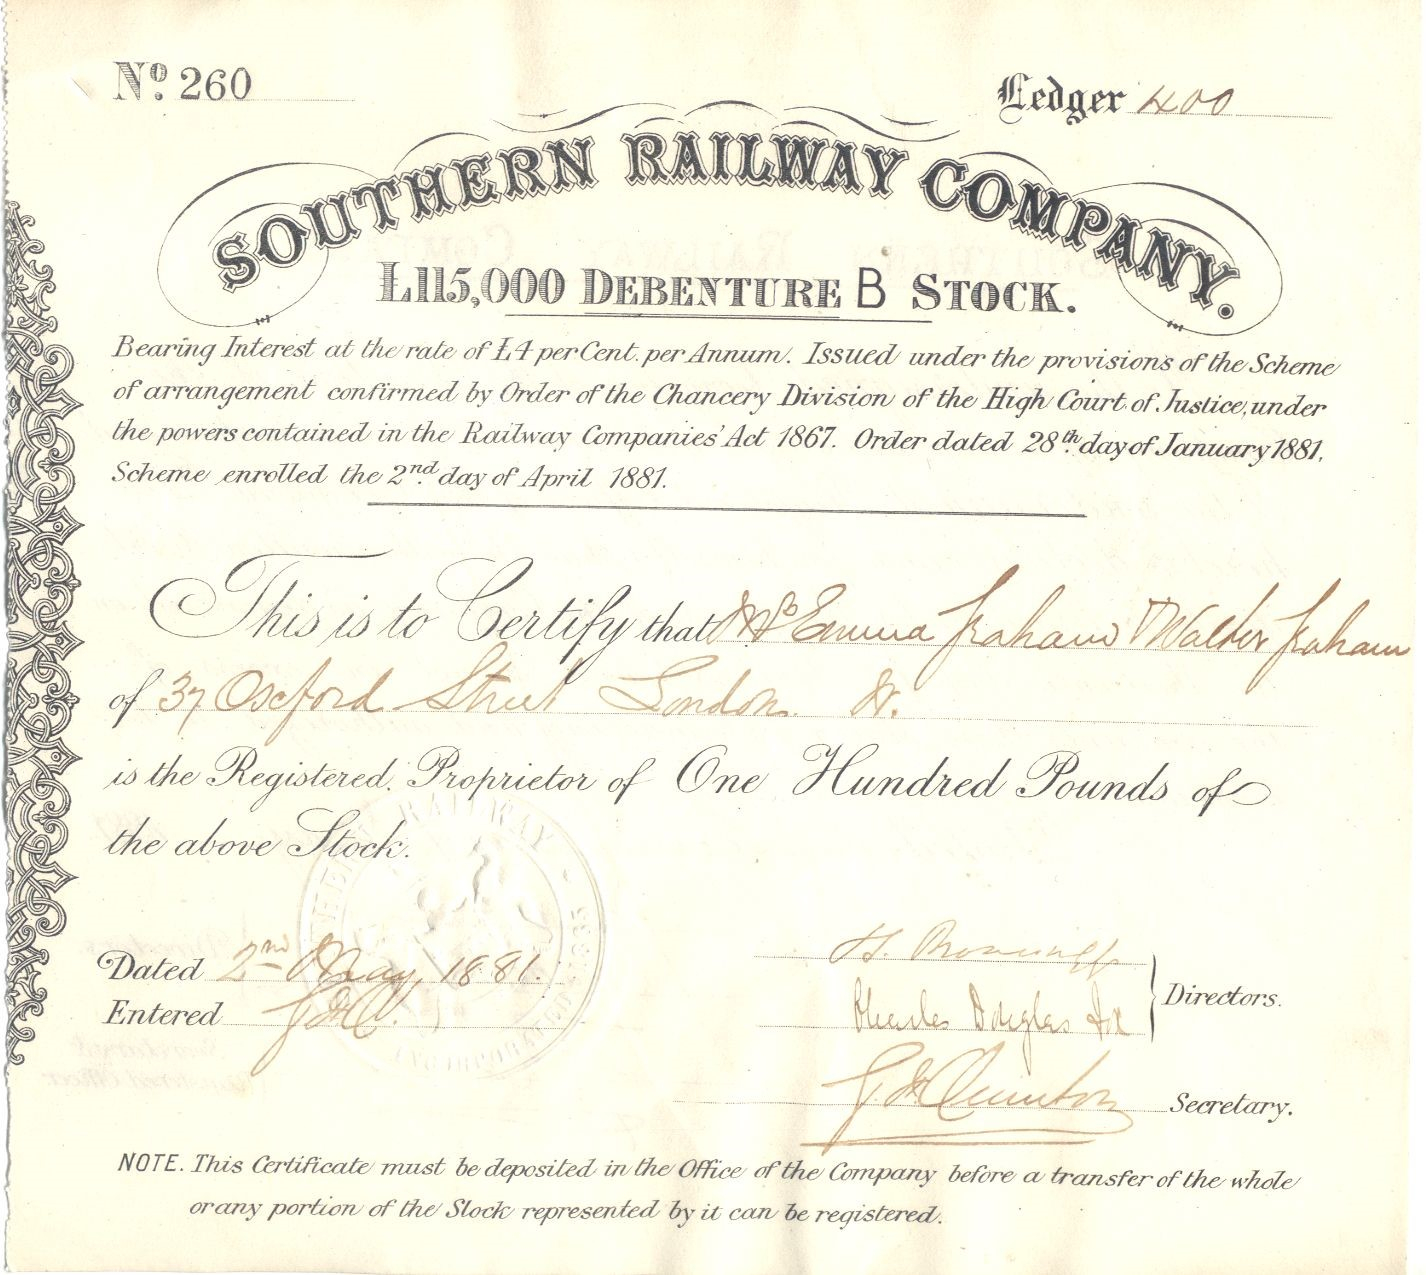 No. 260
Ledger 400
SOUTHERN RAILWAY COMPANY.
£115,000 DEBENTURE B STOCK.
Bearing Interest at the rate of £4 per Cent. per Annum. Issued under the provisions of the Scheme
of arrangement confirmed by Order of the Chancery Division of the High Court of Justice, under
the powers contained in the Railway Companies' Act 1867. Order dated 28th. day of January 1881,
Scheme enrolled the 2nd. day of April 1881.
This is to Certify that Mrs Emma Graham & Walter Graham
of 37 Oxford Street London W.
is the Registered Proprietor of One Hundred Pounds of
the above Stock.
RAILWAY
INCORPORATED
Dated 2nd May, 1881.
Entered
Charles Douglas Fox
Directors.
Secretary.
NOTE. This Certificate must be deposited in the Office of the Company before a transfer of the whole
or any portion of the Stock represented by it can be registered.